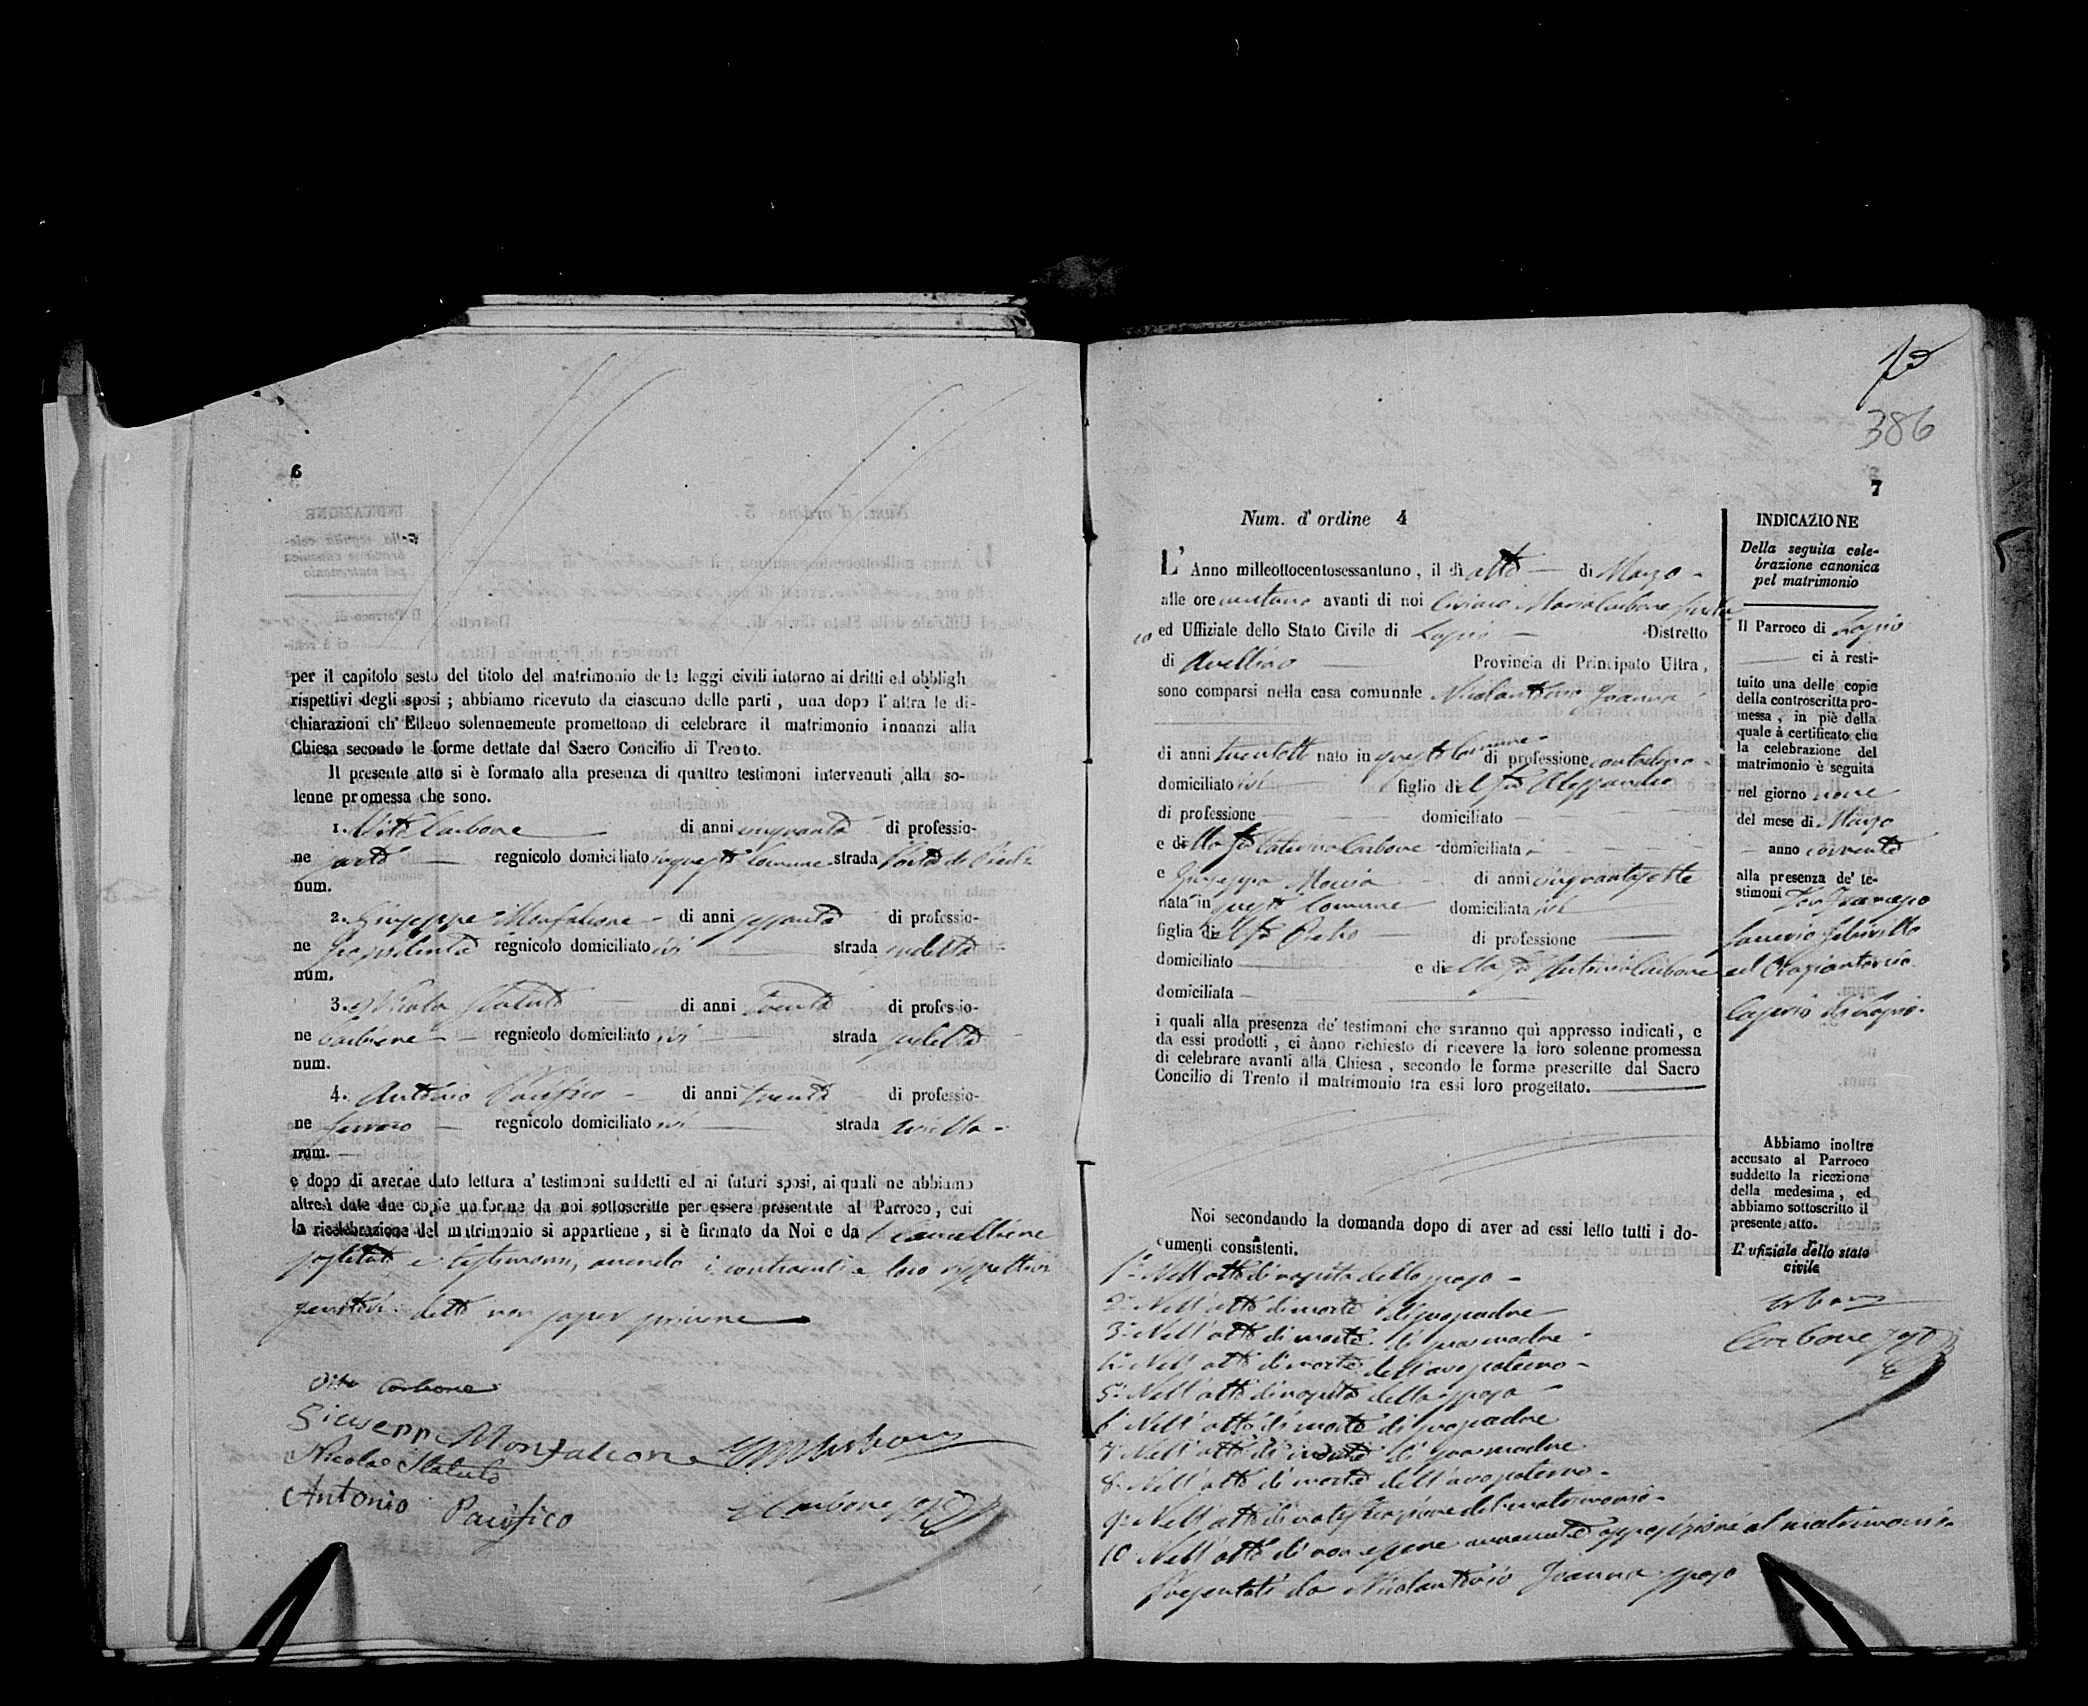 6
per il capitolo sesto del titolo del matrimonio de le leggi civili intorno ai dritti ed obbligh
rispettivi degli sposi ; abbiamo ricevuto da ciascuno delle parti , una dopo l'altra le di-
chiarazioni ch' Elleno solennemente promettono di celebrare il matrimonio innanzi alla
Chiesa secondo le forme dettate dal Sacro Concilio di Trento.
Il presente atto si è formato alla presenza di quattro testimoni intervenuti alla so-
lenne promessa che sono.
1. Vito Carbone di anni cinquanta di professio-
ne sarto regnicolo domiciliato in questo Comune strada Porta di
num.
2. Giuseppe Monfalcone di anni sessanta di professio-
ne proprietario regnicolo domiciliato ivi strada sudetta
num.
3. Nicola Statuto di anni trenta di professio-
ne barbiere regnicolo domiciliato ivi strada sudetta
num.
4. Antonio Pacifico di anni trenta di professio-
ne regnicolo domiciliato ivi strada
num.
e dopo di averne dato lettura a' testimoni suddetti ed ai futuri sposi, ai quali ne abbiamo
altresì date due copie uniforme da noi sottoscritte per essere presentate al Parroco, cui
la ricelebrazione del matrimonio si appartiene, si è firmato da Noi e da l Cancelliere
sostituto e testimoni, avendo i contraenti e loro rispettivi
genitori detto non saper scrivere
Vito Carbone
Giuseppe Monfalcone
Nicolao Statuto
Antonio Pacifico
Carbone
13
386
7
Num. d' ordine 4
L' Anno milleottocentosessantuno, il dì otto di Marzo
alle ore ventuno avanti di noi Ciriaco Maria Carbone Sinda
co ed Uffiziale dello Stato Civile di Lapio Distretto
di Avellino Provincia di Principato Ultra,
sono comparsi nella casa comunale Nicolantonio Joanna
di anni trentotto nato in questo Comune di professione contadino
domiciliato ivi figlio del fu Alessandro
di professione domiciliato
e della fu Caterina Carbone domiciliata
e Giuseppa Maria di anni cinquantasette
nata in questo Comune domiciliata ivi
figlia del fu Pietro di professione
domiciliato e della fu Antonia Carbone
domiciliata
i quali alla presenza de' testimoni che saranno qui appresso indicati, e
da essi prodotti , ci ànno richiesto di ricevere la loro solenne promessa
di celebrare avanti alla Chiesa , secondo le forme prescritte dal Sacro
Concilio di Trento il matrimonio tra essi loro progettato.
Noi secondando la domanda dopo di aver ad essi letto tutti i do-
cumenti consistenti.
1° Nell'atto di nascita dello sposo
2° Nell'atto di morte di suo padre
3° Nell'atto di morte di sua madre
4° Nell'atto di morte dell'avo paterno
5° Nell'atto di nascita della sposa
6° Nell'atto di morte di suo padre
7° Nell'atto di morte di sua madre
8° Nell'atto di morte dell'avo paterno
9° Nell'atto di notificazione del matrimonio
10 Nell'atto di non essere avvenuta opposizione al matrimonio
Presentati da Nicolantonio Joanna sposo
INDICAZIONE
Della seguita cele-
brazione canonica
pel matrimonio
Il Parroco di Lapio
ci à resti-
tuito una delle copie
della controscritta pro-
messa , in piè della
quale à certificato che
la celebrazione del
matrimonio è seguita
nel giorno nove
del mese di Marzo
anno corrente
alla presenza de' te-
stimoni
Saverio
ed Oraziantonio
di Lapio
Abbiamo inoltre
accusato al Parroco
suddetto la ricezione
della medesima, ed
abbiamo sottoscritto il
presente atto.
L' ufiziale dello stato
civile
Carbone